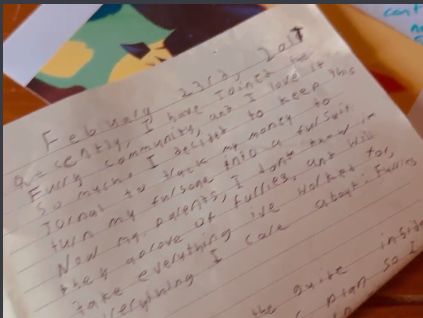 February 23rd, 2017
Recently, I have Joined the
Furry community, and I love it
so much. I decided to keep this
Jornal to track my money to
turn my fursona into a fursuit.
Now my parents, I dont think
they aprove of furries, and will
take everything ive worked for,
everything I care about. Furries
the suite inside
plan so I
cant